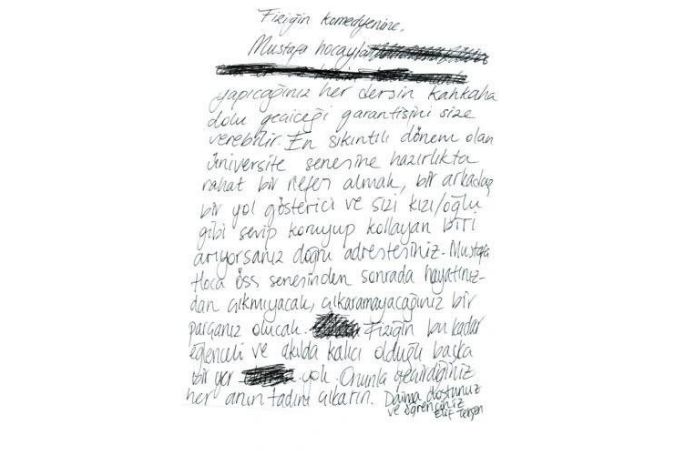 Fiziğin komedyenine,
Mustafa hocayla
yapıcağınız her dersin kahkaha
dolu geçiceği garantisini size
verebilir. En sıkıntılı dönem olan
üniversite senesine hazırlıkta
rahat bir nefes almak, bir arkadaş
bir yol gösterici ve sizi kızı/oğlu
gibi sevip koruyup kollayan biri
arıyorsanız doğru adrestesiniz. Mustafa
Hoca öss senesinden sonrada hayatınız-
dan çıkmıyacak, çıkaramayacağınız bir
parçanız olucak. Fiziğin bu kadar
eğlenceli ve akılda kalıcı olduğu başka
bir yer yok. Onunla geçirdiğiniz
her anın tadını çıkarın. Daima dostunuz
ve öğrenciniz
Elif